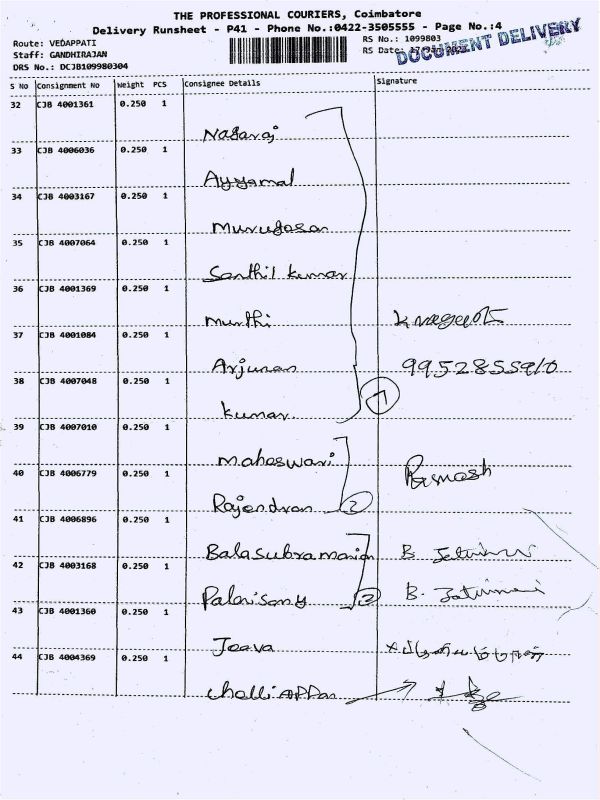 THE PROFESSIONAL COURIERS, Coimbatore
Delivery Runsheet - P41 - Phone No.:0422-3505555 - Page No.:4
Route: VEDAPPATI
RS No.: 1099803
Staff: GANDHIRAJAN
RS Date:
DOCUMENT DELIVERY
DRS No.: DCJB109980304
S No Consignment No Weight PCS Consignee Details Signature
32 CJB 4001361 0.250 1 Nagaraj
33 CJB 4006036 0.250 1 Ayyamal
34 CJB 4003167 0.250 1 Murugasan
35 CJB 4007064 0.250 1 Santhil kumar
36 CJB 4001369 0.250 1 Murthi
37 CJB 4001084 0.250 1 Arjunan 9952855910
38 CJB 4007048 0.250 1 kumar 7
39 CJB 4007010 0.250 1 Maheswari
40 CJB 4006779 0.250 1 Rajendran 2
41 CJB 4006896 0.250 1 Balasubramanian B.
42 CJB 4003168 0.250 1 Palanisamy 2 B.
43 CJB 4001360 0.250 1 Jeeva
44 CJB 4004369 0.250 1 Challiappan